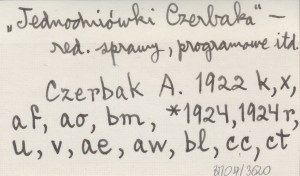 „Jednodniówki Czerbaka" –
red. sprawy, programowe itd.
Czerbak A. 1922 k, x,
af, ao, bm, *1924, 1924 r,
u, v, ae, aw, bl, cc, ct